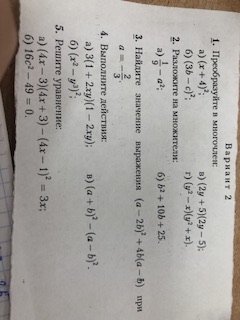 Вариант 2
1. Преобразуйте в многочлен:
а) (x + 4)²; в) (2y + 5)(2y − 5);
б) (3b − c)²; г) (y² − x)(y² + x).
2. Разложите на множители:
а) 1/9 − a²; б) b² + 10b + 25.
3. Найдите значение выражения (a − 2b)² + 4b(a − b) при
a = −2/3.
4. Выполните действия:
а) 3(1 + 2xy)(1 − 2xy); в) (a + b)² − (a − b)².
б) (x² − y³)²;
5. Решите уравнение:
а) (4x − 3)(4x + 3) − (4x − 1)² = 3x;
б) 16c² − 49 = 0.